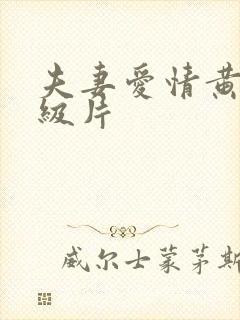 夫妻愛情黄
級片
威尔士蒙茅斯